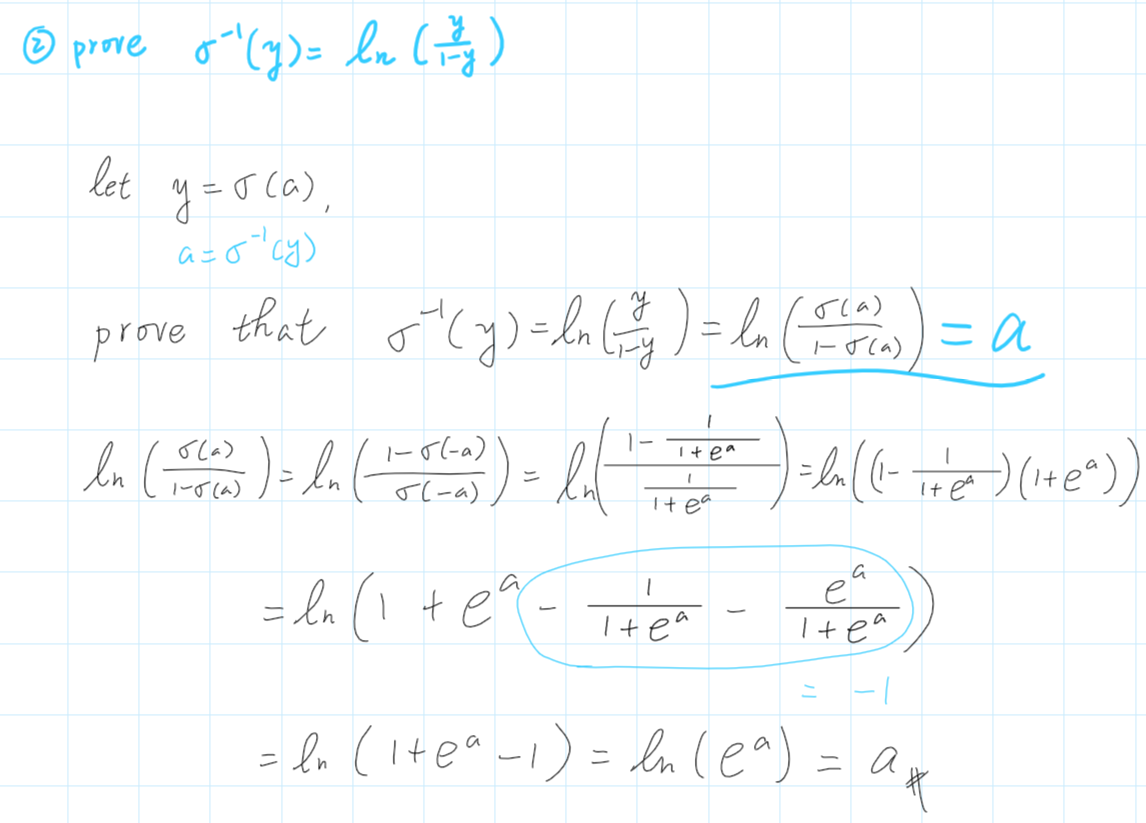 ② prove σ⁻¹(y) = ln (y/(1-y))
let y = σ(a),
a = σ⁻¹(y)
prove that σ⁻¹(y) = ln (y/(1-y)) = ln (σ(a)/(1-σ(a))) = a
ln (σ(a)/(1-σ(a))) = ln ((1-σ(-a))/σ(-a)) = ln ((1 - 1/(1+eᵃ))/(1/(1+eᵃ))) = ln ((1 - 1/(1+eᵃ))(1+eᵃ))
= ln (1 + eᵃ - 1/(1+eᵃ) - eᵃ/(1+eᵃ))
= -1
= ln (1+eᵃ -1) = ln (eᵃ) = a #